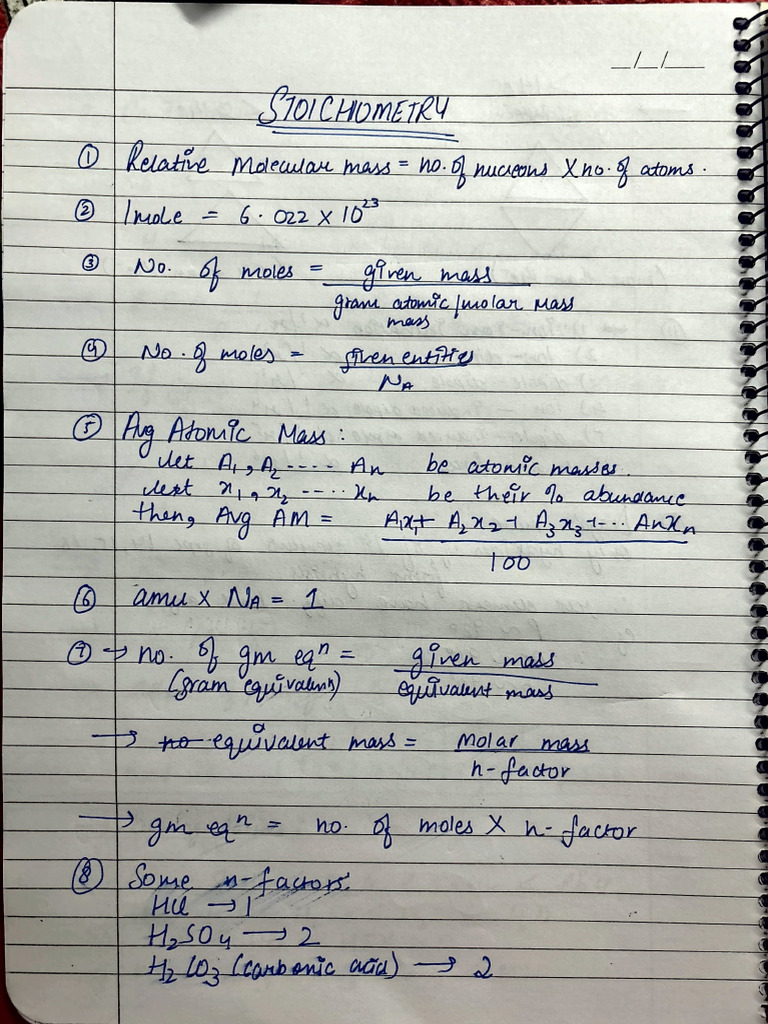 __/__/__
STOICHIOMETRY
① Relative Molecular mass = no. of nucleons × no. of atoms.
② 1 mole = 6.022 × 10²³
③ No. of moles = given mass
gram atomic/molar mass
mass
④ No. of moles = given entities
NA
⑤ Avg Atomic Mass :
let A₁, A₂ ---- An be atomic masses.
let x₁, x₂ ---- xn be their % abundance
then, Avg AM = A₁x₁ + A₂x₂ + A₃x₃ + -.. Anxn
100
⑥ amu × NA = 1
⑦ → no. of gm eqⁿ = given mass
(gram equivalent) equivalent mass
→ no equivalent mass = Molar mass
n-factor
→ gm eqⁿ = no. of moles × n-factor
⑧ Some n-factors.
HCl → 1
H₂SO₄ → 2
H₂CO₃ (carbonic acid) → 2